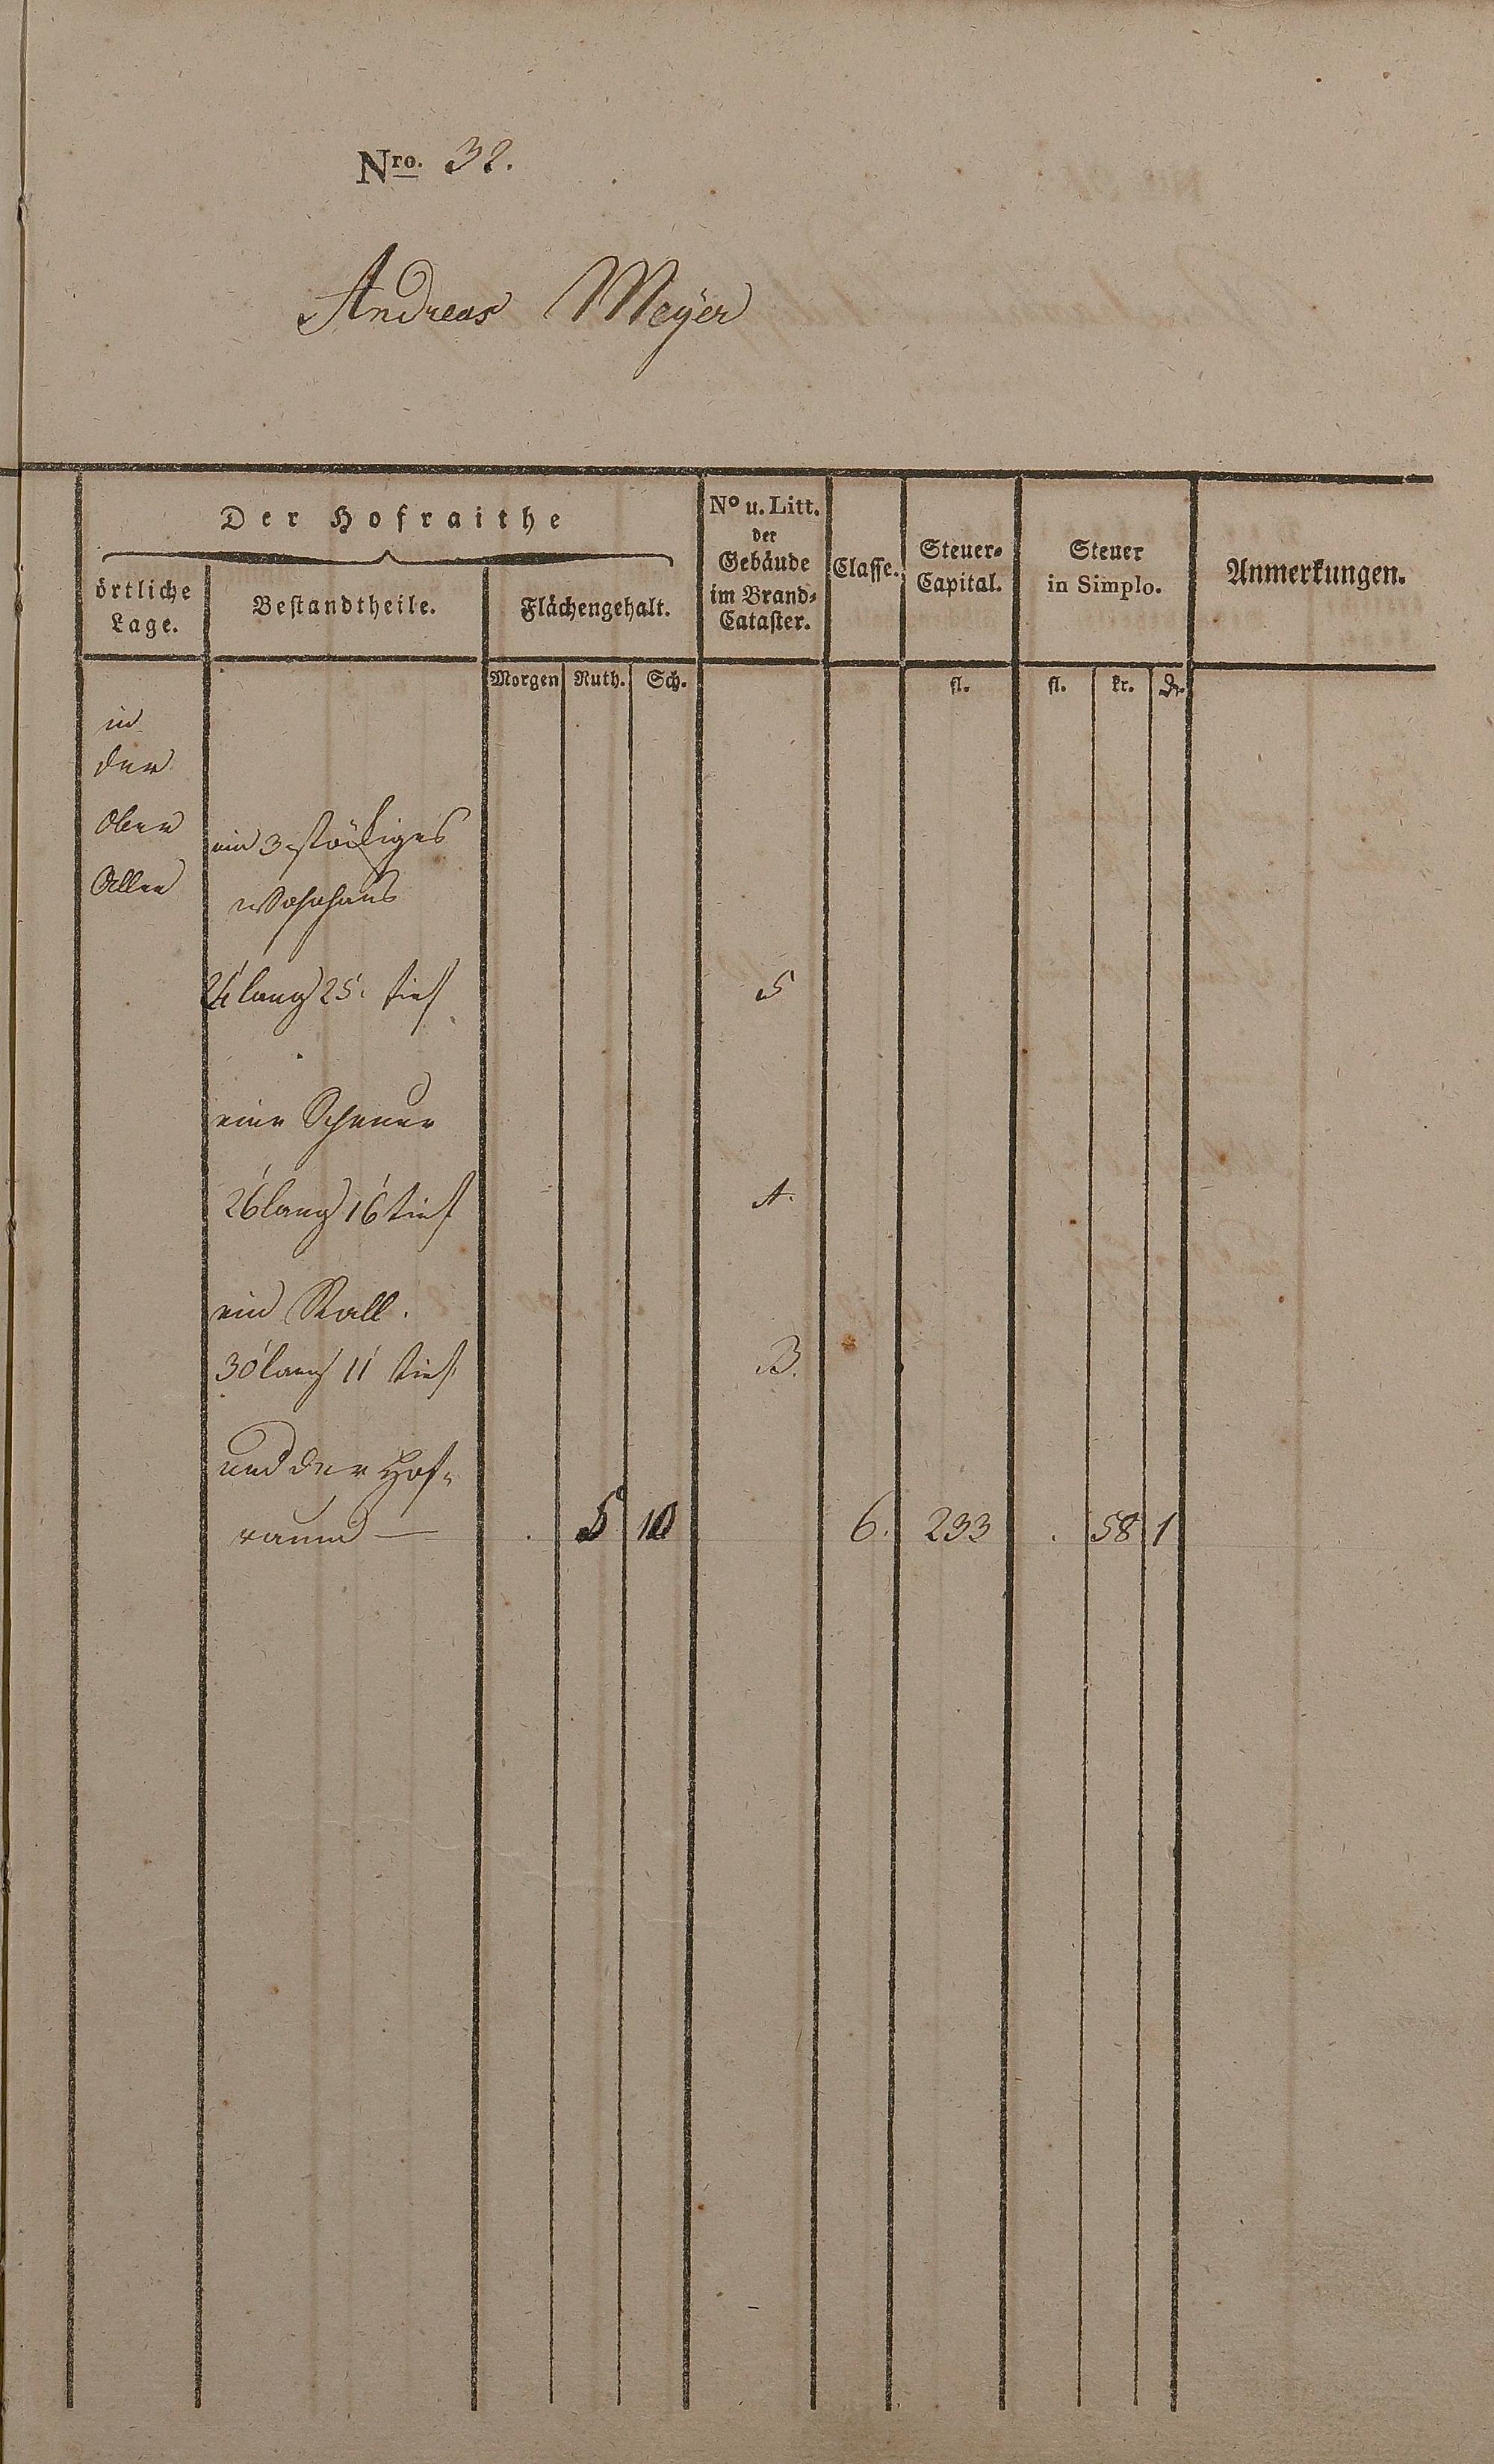 Nro. 32.
Andreas Meÿer
Der Hofraithe
örtliche Lage.
Bestandtheile.
Flächengehalt.
No u. Litt. der Gebäude im Brand-Cataster.
Classe.
Steuer-Capital.
Steuer in Simplo.
Anmerkungen.
Morgen Ruth. Sch. fl. fl. kr.
in
der
Ober
ein 3 stöckiges
Wohnhaus
lang 25' tief 5
eine Scheuer
26' lang 16' tief A.
ein Stall.
30' lang 11' tief B.
und der Hof-
raum — . 5 10 6. 233 . 58 1